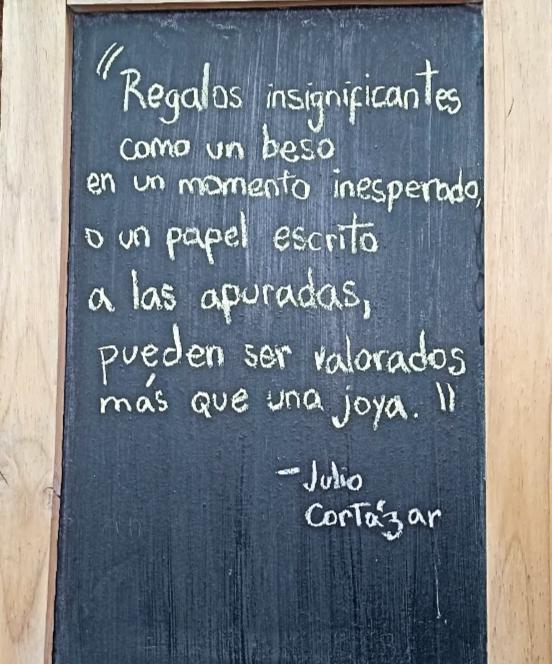 "Regalos insignificantes
como un beso
en un momento inesperado,
o un papel escrito
a las apuradas,
pueden ser valorados
más que una joya."
- Julio
Cortázar